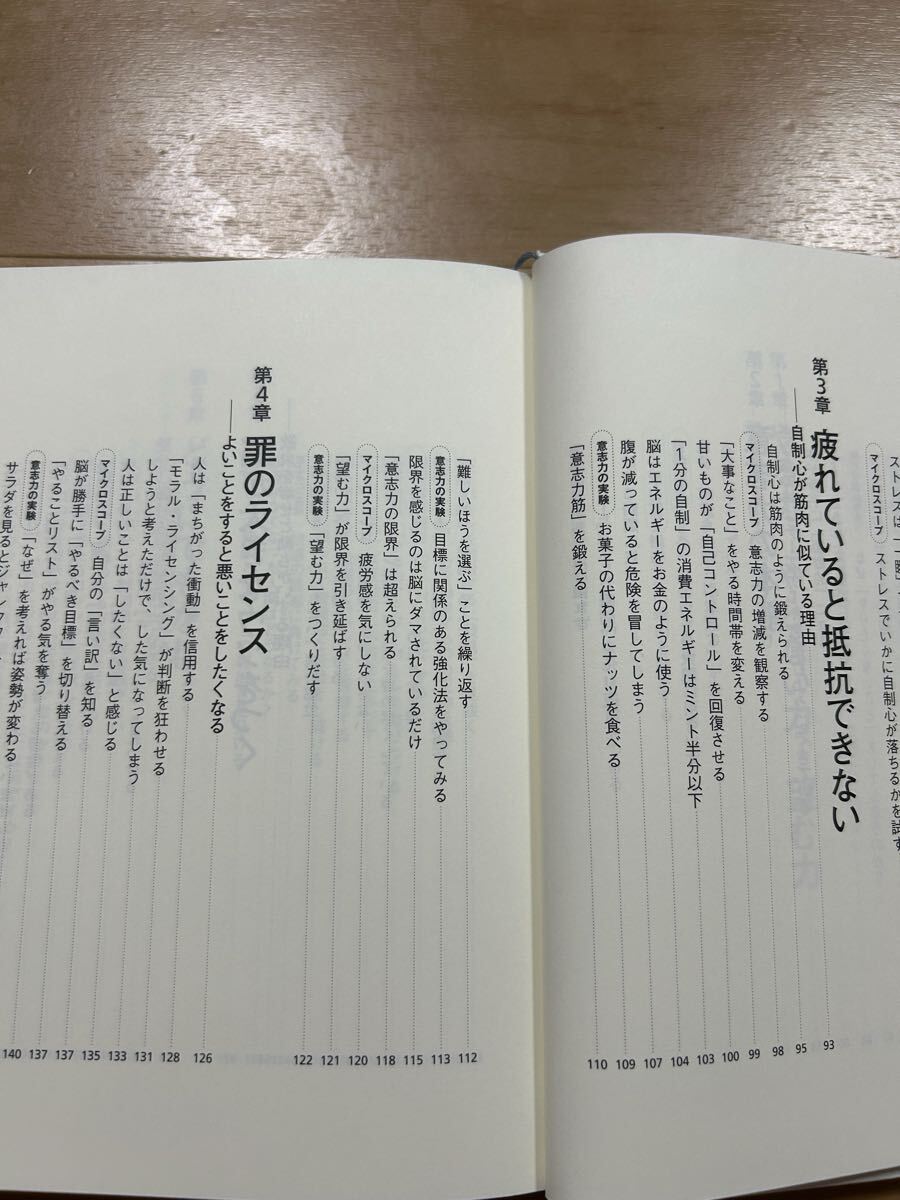 マイクロスコープ ストレスでいかに自制心が落ちるかを試す
第3章 疲れていると抵抗できない
——自制心が筋肉に似ている理由
93
自制心は筋肉のように鍛えられる 95
マイクロスコープ 意志力の増減を観察する 98
「大事なこと」をやる時間帯を変える 99
甘いものが「自己コントロール」を回復させる 100
「1分の自制」の消費エネルギーはミント半分以下 103
脳はエネルギーをお金のように使う 104
腹が減っていると危険を冒してしまう 107
意志力の実験 お菓子の代わりにナッツを食べる 109
「意志力筋」を鍛える 110
「難しいほうを選ぶ」ことを繰り返す 112
意志力の実験 目標に関係のある強化法をやってみる 113
限界を感じるのは脳にダマされているだけ 115
「意志力の限界」は超えられる 118
マイクロスコープ 疲労感を気にしない 120
「望む力」が限界を引き延ばす 121
意志力の実験 「望む力」をつくりだす 122
第4章 罪のライセンス
——よいことをすると悪いことをしたくなる
人は「まちがった衝動」を信用する 126
「モラル・ライセンシング」が判断を狂わせる 128
しようと考えただけで、した気になってしまう 131
人は正しいことは「したくない」と感じる 133
マイクロスコープ 自分の「言い訳」を知る 135
脳が勝手に「やるべき目標」を切り替える 137
「やることリスト」がやる気を奪う 137
意志力の実験 「なぜ」を考えれば姿勢が変わる 140
サラダを見ると